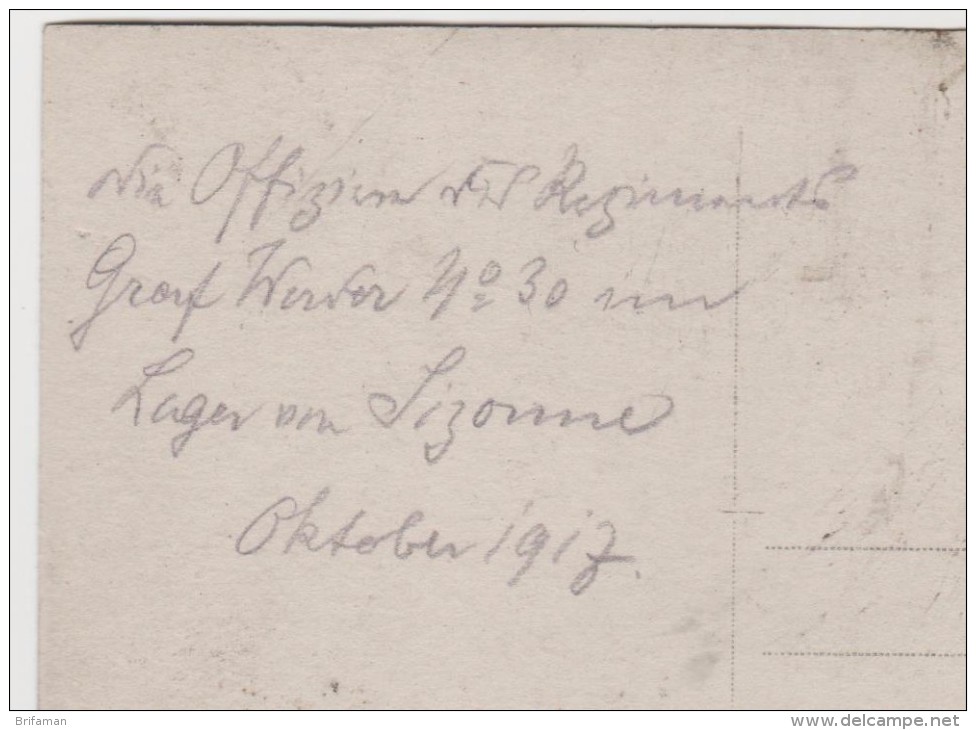 die Offiziere des Regiments
Graf Werder No 30 im
Lager von Sizonne
Oktober 1917.
Brifaman
www.delcampe.net